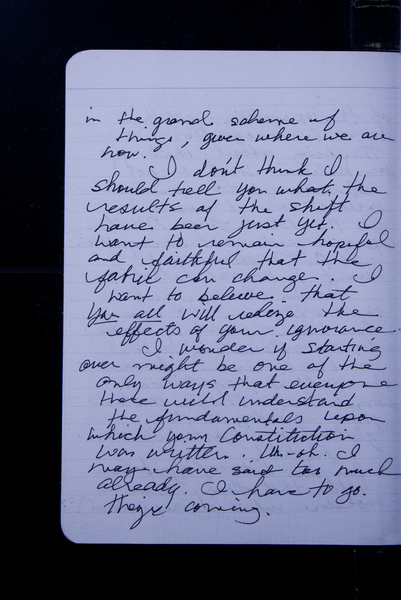 in the grand scheme of
things, given where we are
now.
I don't think I
should tell you what the
results of the shift
have been just yet. I
want to remain hopeful
and faithful that the
fabric can change. I
want to believe that
you all will realize the
effects of your ignorance.
I wonder if starting
over might be one of the
only ways that everyone
there will understand
the fundamentals upon
which your Constitution
was written. Uh-oh. I
may have said too much
already. I have to go.
They're coming.